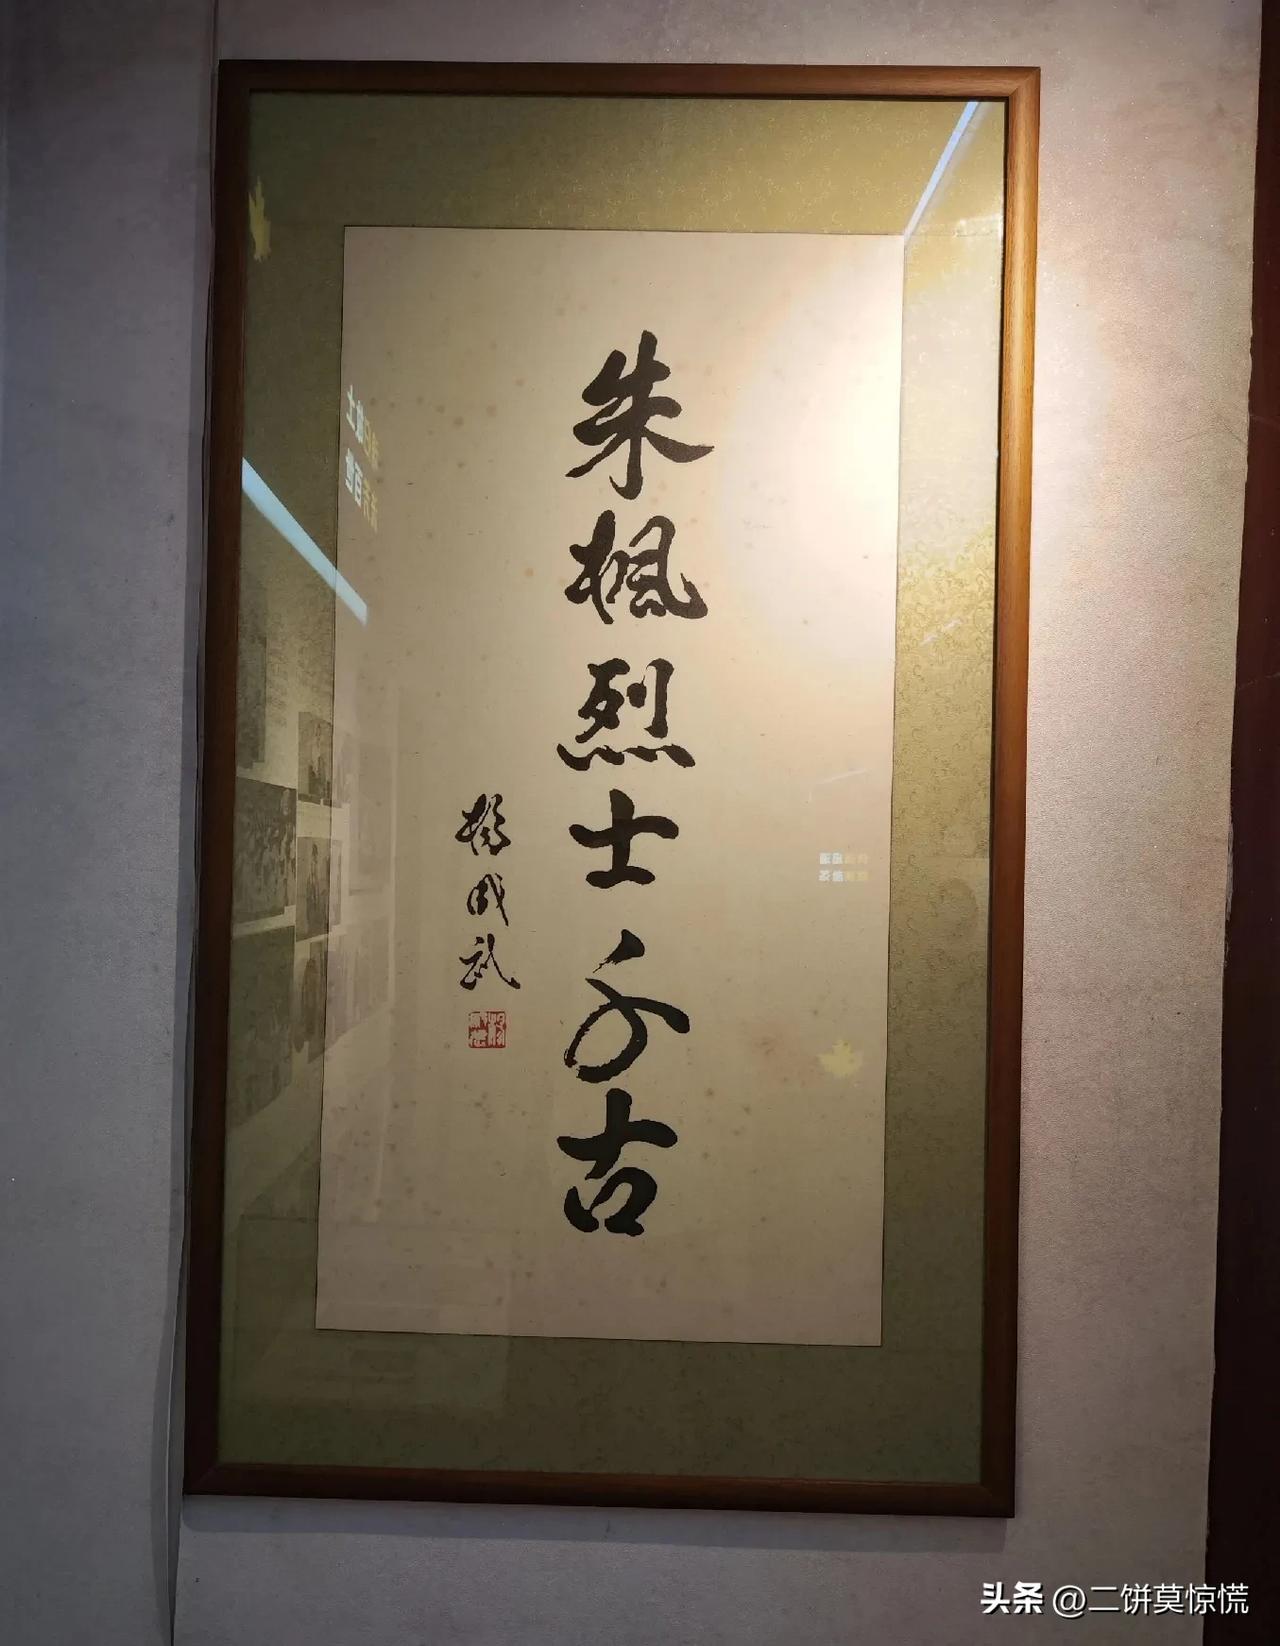 朱枫烈士千古
杨成武
头条 @二饼莫惊慌